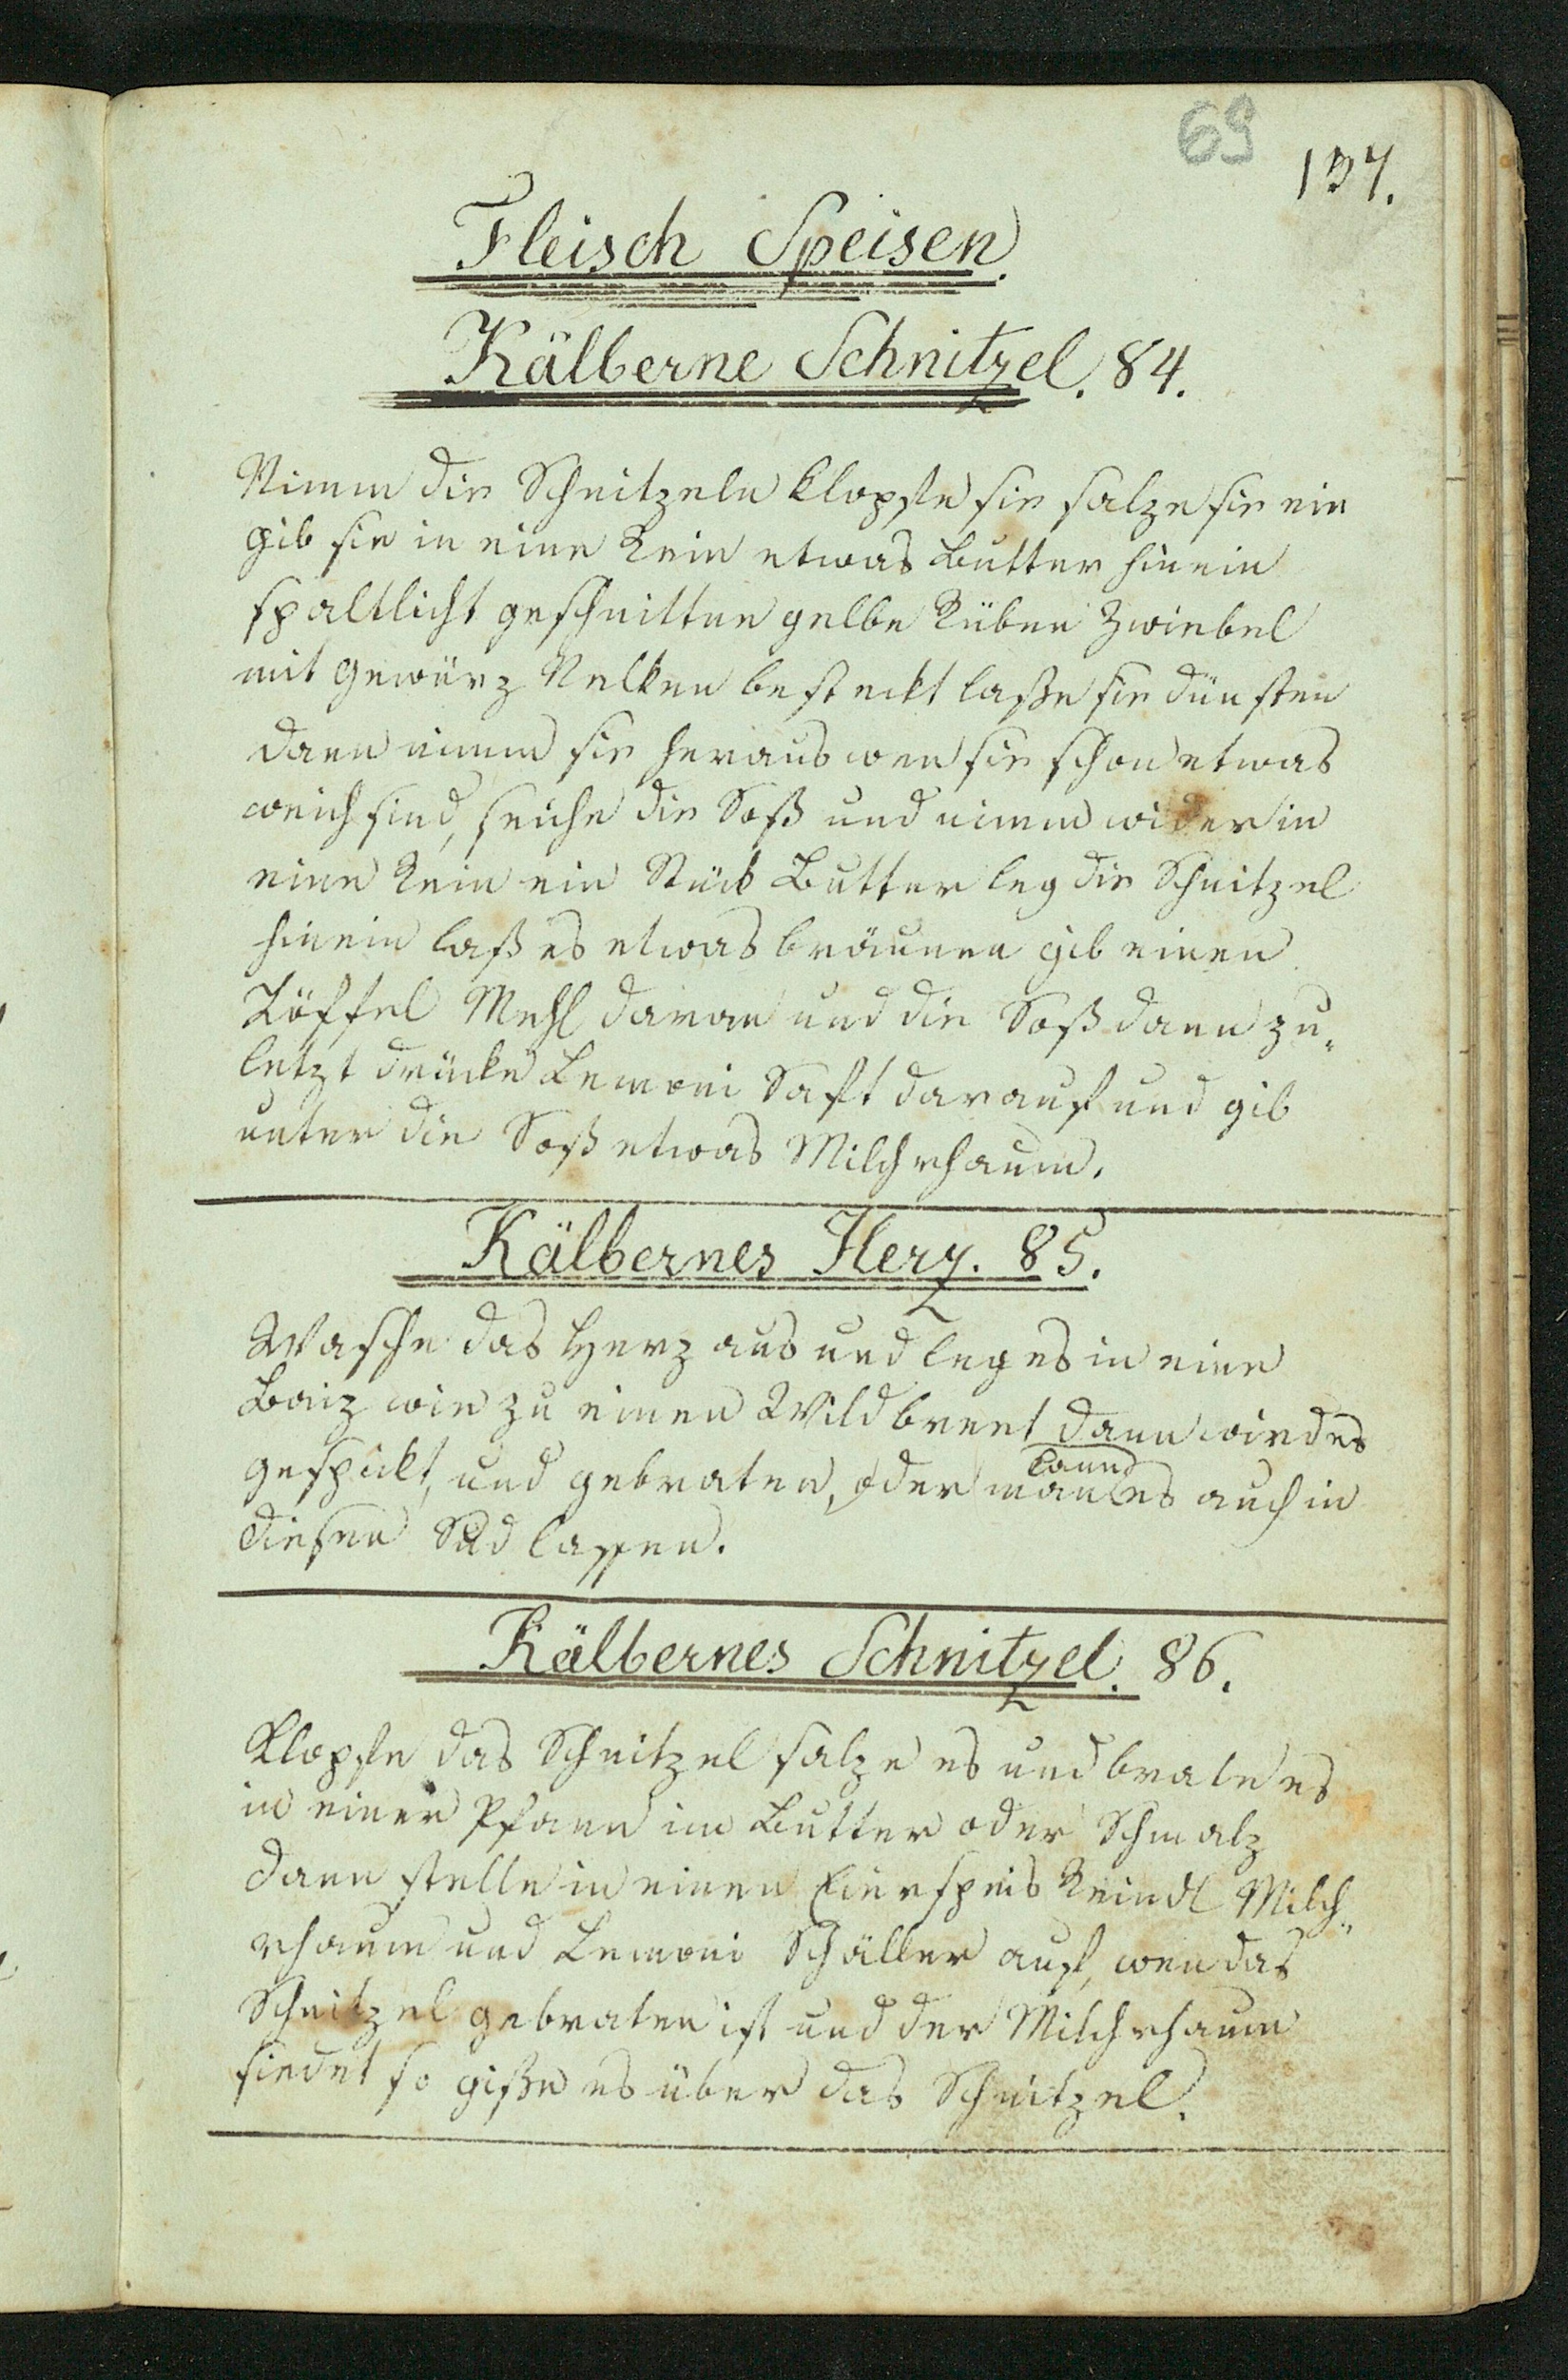 69
137.
Fleisch Speisen.
Kälberne Schnitzel. 84.
Nimm die Schnitzeln klopfe sie salze sie ein
gib sie in eine Rein etwas Butter hinein
spaltlicht geschnitten gelbe Rüben Zwiebel
mit Gewürz Nelken besteckt laße sie dünsten
dann nimm sie heraus wen sie schon etwas
weich sind, seiche die Soß und nimm wider in
eine Rein ein Stück Butter leg die Schnitzel
hinein laß es etwas bräunen gib einen
Löffel Mehl daran und die Soß dann zu„
letzt drücke Lemoni Saft darauf und gib
unter die Soß etwas Milchrhaum.
Kälbernes Herz. 85.
Wasche das Herz aus und leg es in eine
Baiz wie zu einen Wildbrett dann wird es
gespickt, und gebraten, oder man kann es auch in
diesen Sud lassen.
Kälbernes Schnitzel. 86.
Klopfe das Schnitzel salze es und brate es
in einer Pfann im Butter oder Schmalz
dann stelle in einen Eierspeis Reindl Milch„
rhaum und Lemoni Schäller auf, wen das
Schnitzel gebraten ist und der Milchrhaum
siedet so giße es über das Schnitzel.